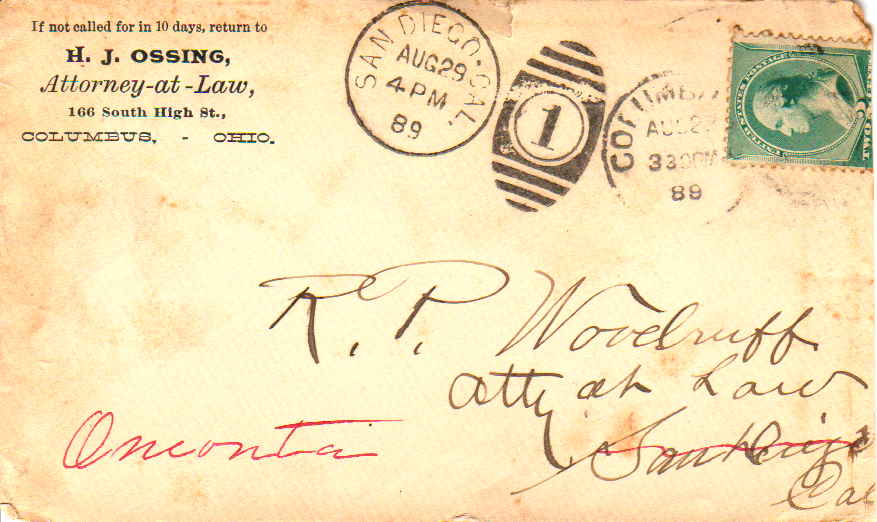 If not called for in 10 days, return to
H. J. OSSING,
Attorney-at-Law,
166 South High St.,
COLUMBUS, - OHIO.
SAN DIEGO CAL.
AUG 29
4 PM
89
1
COLUMB
AUG 2
330PM
89
UNITED STATES POSTAGE
R. P. Woodruff
Atty at Law
San Diego
Cal
Oneonta